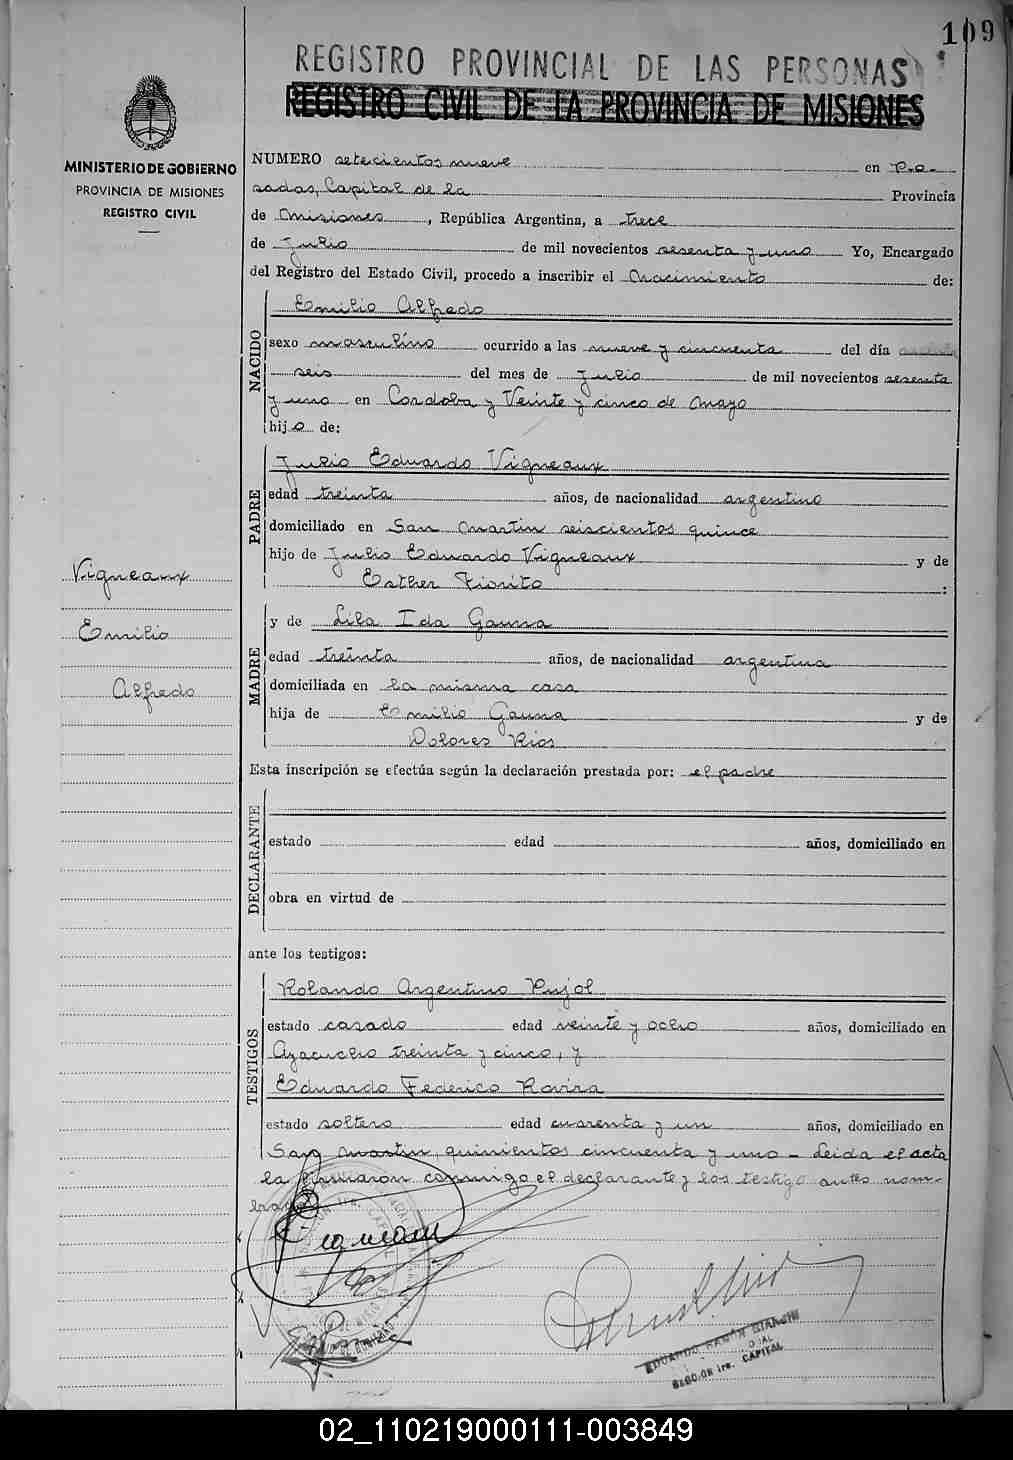 109
REGISTRO PROVINCIAL DE LAS PERSONAS
REGISTRO CIVIL DE LA PROVINCIA DE MISIONES
MINISTERIO DE GOBIERNO
PROVINCIA DE MISIONES
REGISTRO CIVIL
NUMERO setecientos nueve en Po-
sadas, Capital de la Provincia
de Misiones, República Argentina, a trece
de Julio de mil novecientos sesenta y uno Yo, Encargado
del Registro del Estado Civil, procedo a inscribir el Nacimiento de:
NACIDO
Emilio Alfredo
sexo masculino ocurrido a las nueve y cincuenta del día
seis del mes de Julio de mil novecientos sesenta
y uno en Cordoba y Veinte y cinco de Mayo
hijo de:
PADRE
Julio Eduardo Vigneaux
edad treinta años, de nacionalidad argentino
domiciliado en San Martin seiscientos quince
hijo de Julio Eduardo Vigneaux y de
Esther Fiorito :
Vigneaux
Emilio
Alfredo
MADRE
y de Lila Ida Gauna
edad treinta años, de nacionalidad argentina
domiciliada en la misma casa
hija de Emilio Gauna y de
Dolores Rios
Esta inscripción se efectúa según la declaración prestada por: el padre
DECLARANTE
estado edad años, domiciliado en
obra en virtud de
ante los testigos:
TESTIGOS
Rolando Argentino Pujol
estado casado edad veinte y ocho años, domiciliado en
Ayacucho treinta y cinco, y
Eduardo Federico Rovira
estado soltero edad cuarenta y un años, domiciliado en
San Martin quinientos cincuenta y uno - Leida el acta
la firmaron conmigo el declarante y los testigo antes nom-
brados
EDUARDO RAMÓN BIANCHI
SECC.ON 1ra. CAPITAL
02_110219000111-003849